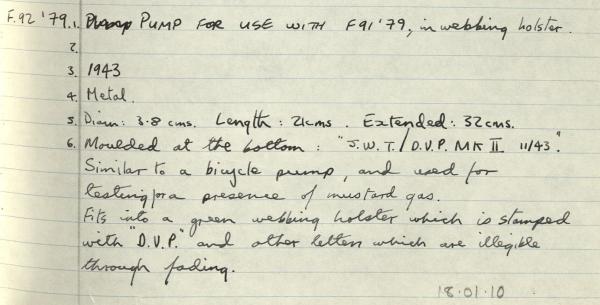 F.92 '79. 1. PUMP FOR USE WITH F91 '79, in webbing holster.
2.
3. 1943
4. Metal.
5. Diam: 3.8 cms. Length: 21cms. Extended: 32cms.
6. Moulded at the bottom: "J.W.T./D.V.P. MK II 11/43".
Similar to a bicycle pump, and used for
testing for a presence of mustard gas.
Fits into a green webbing holster which is stamped
with "D.V.P." and other letters which are illegible
through fading.
18.01.10